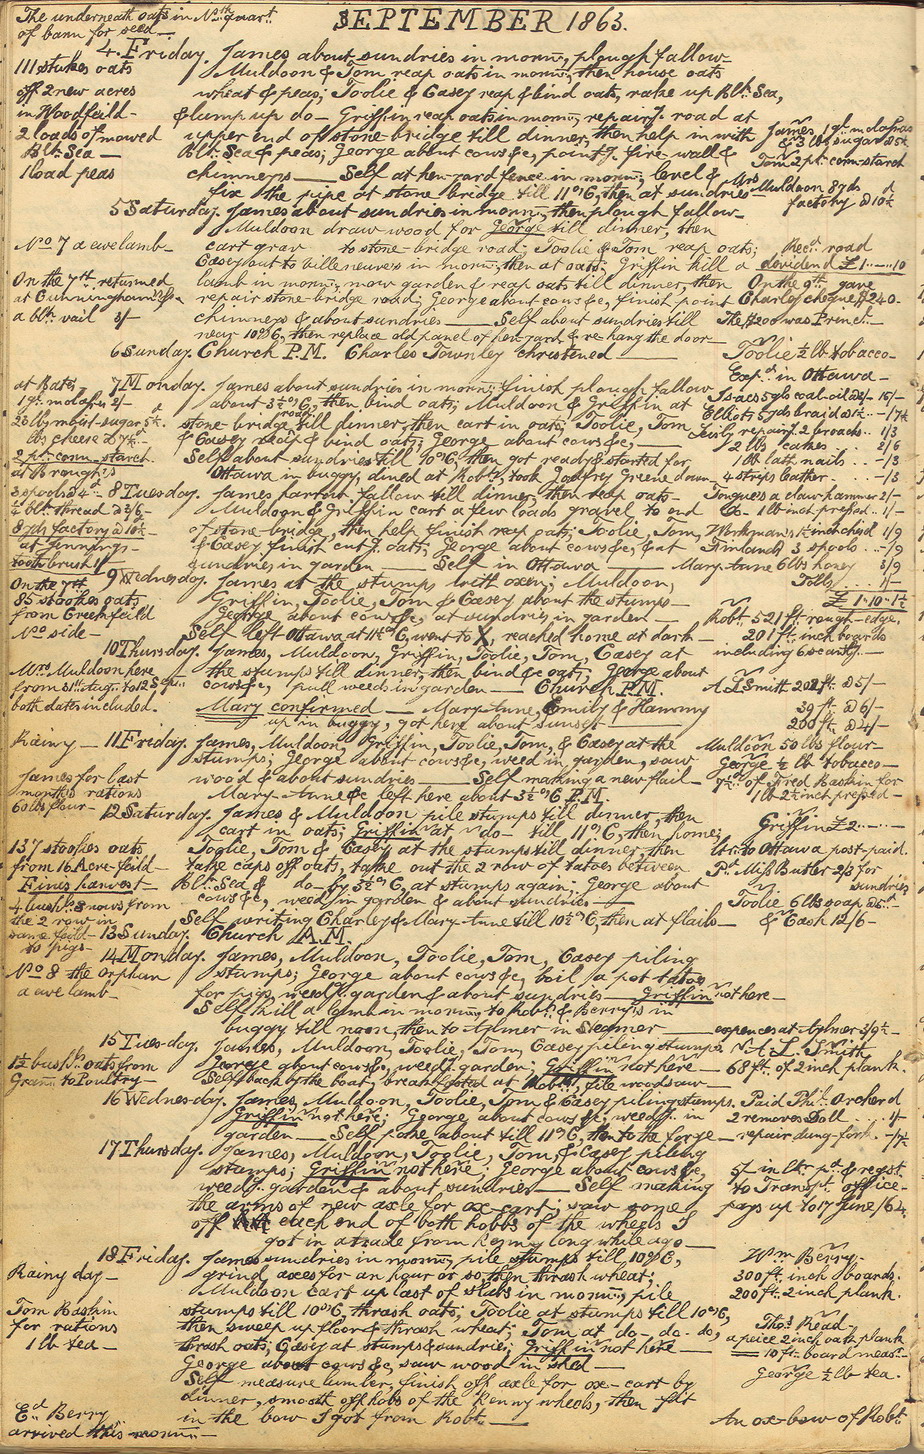 SEPTEMBER 1863.
The underneath oats in Nth quart
of barn for seed
4. Friday. James about sundries in morng, plough fallow
Muldoon & Tom reap oats in morng, then house oats
111 stukes oats
off 2 new acres
in Woodfeild -
2 loads of mowed
Blk Sea -
1 load peas
wheat & peas; Toolie & Casey reap & bind oats, rake up Blk Sea,
& lump up do - Griffin reap oats in morng, repairg road at
upper end of stone-bridge till dinner, then help in with
Blk Sea & peas; George about cows &c, pointg fire-wall &
chimneys — Self at hen-yard fence in morng, level &
fix the pipe at stone bridge till 11 o'C, then at sundries
James 1 gn molasses
& 3 lb sugar
Tom 2 pt corn-starch
Mrs Muldoon 8 yds
factory @ 10½
5 Saturday. James about sundries in morng, then plough fallow
Muldoon draw wood for George till dinner, then
No 7 a ewe lamb
cart grav to stone-bridge road; Toolie & Tom reap oats;
Casey out to Villeneuve's in morng, then at oats; Griffin kill a
lamb in morng, mow garden & reap oats till dinner, then
repair stone-bridge road; George about cows &c, finish point
chimneys & about sundries — Self about sundries till
near 10 o'C, then replace old panel of hen-yard & re-hang the door
On the 7th returned
at Cunningham's
a blk vail 3/-
Recd road
devidend £1 - - 10
On the 9th gave
Charley cheque $240-
The $200 was Princl
6 Sunday. Church P.M. Charles Townley christened
Toolie ½ lb tobacco
Expd in Ottawa
7 Monday. James about sundries in morng; finish plough fallow
about 3½ o'C, then bind oats; Muldoon & Griffin at
stone-bridge road till dinner, then cart in oats; Toolie, Tom
& Casey reap & bind oats; George about cows &c,
Self about sundries till 10 o'C; then got ready & started for
Ottawa in buggy, dined at Robts, took Godfrey Greene down
at Bates
1 gn molasses 2/-
26 lbs moist-sugar 5½d
lbs cheese @ 7½
2 pt corn starch
at Brough's
3 spools 4d
a blk thread @ 2/6
8 yds factory @ 10½
at Jennings
tooth brush 1/-
Isaacs 5 gls coal oil - 15/-
Elliots 5 yds braid @ 1½ -/7½
repairg 2 broachs 1/3
2 lbs cakes 2/6
1 lb lath nails -/3
4 strips leather -/3
8 Tuesday. James harrow fallow till dinner, then reap oats -
Muldoon & Griffin cart a few loads gravel to end
of stone-bridge, then help finish reap oats; Toolie, Tom,
& Casey finish cutg oats; George about cows &c, & at
sundries in garden — Self in Ottawa
Tongue's a claw hammer 2/-
1 lb 1 inch pressd 1/-
Workman's 1½ inch chisel 1/9
3 spools -/9
Mary-Anne 6 lbs honey 3/9
Tolls 1/-
£ 1 - 10 - 1½
9 Wednesday. James at the stumps with oxen; Muldoon,
Griffin, Toolie, Tom & Casey about the stumps -
George about cows &c, at sundries in garden -
Self left Ottawa at 11½ o'C, went to X, reached home at dark
On the 7th
85 stookes oats
from Creekfeild
No side -
Robt 521 ft rough-edge,
201 ft inch boards
including 6 scantg
10 Thursday. James, Muldoon, Griffin, Toolie, Tom, Casey at
the stumps till dinner, then bind &c oats; George about
cows &c, pull weeds in garden — Church P.M.
Mary confirmed — Mary-Anne, Emily & Hammy
up in buggy, got here about sunset
Mrs Muldoon here
from 31st Augt to 12 Sepr
both dates included.
A L Smith 202 ft @ 5/-
39 ft @ 6/-
200 ft @ 4/-
Rainy - 11 Friday. James, Muldoon, Griffin, Toolie, Tom, & Casey at the
stumps; George about cows &c, weed in garden, saw
wood & about sundries — Self making a new flail -
Mary-Anne &c left here about 3½ o'C P.M.
James for last
months rations
60 lbs flour -
Muldoon 50 lbs flour -
George ½ lb tobacco -
of Fred Baskin for
1 lb 2½ inch pressd -
12 Saturday. James & Muldoon pile stumps till dinner, then
cart in oats; Griffin at do till 11 o'C, then home;
Toolie, Tom & Casey at the stumps till dinner, then
take caps off oats, take out the 2 row of tatoes between
Blk Sea & do - by 3½ o'C, at stumps again; George about
cows &c, weed in garden & about sundries
Self writing Charley & Mary-Anne till 10½ o'C, then at flails
137 stookes oats
from 16 Acre-feild
Finis harvest
4 bushs 3 rows from
the 2 row in
same feild
to pigs
Griffin £2 - -
ltr to Ottawa a post-paid.
Pd Miss Butler 2/3 for
sundries
Toolie 6 lbs soap @ 5d
& Cash 12/6
13 Sunday. Church A.M.
14 Monday. James, Muldoon, Toolie, Tom, Casey piling
stumps; George about cows &c, boil a pot tatoe
for pigs, weedg garden & about sundries — Griffin not here
Self kill a lamb in morng, to Robts & Berry's in
buggy till noon, then to Aylmer in Steamer
No 8 the orphan
a ewe lamb
expences at Aylmer 3/9½
15 Tuesday. James, Muldoon, Toolie, Tom, Casey piling stumps
George about cows &c, weedg garden; Griffin not here
Self back by the boat, breakfasted at Robts, file woodsaw
1½ bushs oats from
Grany to Poultry -
A. L. Smith
68 ft. of 2 inch plank.
16 Wednesday. James, Muldoon, Toolie, Tom & Casey piling stumps.
Griffin not here; George about cows &c, weedg in
garden — Self poke about till 11 o'C, then to the forge
Paid Phil Orcherd
2 removes Doll 1/-
repair dung-fork. -/7½
17 Thursday. James, Muldoon, Toolie, Tom, & Casey piling
stumps; Griffin not here; George about cows &c,
weedg garden & about sundries — Self making
the arms of new axle for ox-cart; saw some
off each end of both hobbs of the wheels I
got in a trade from Kenny long while ago
5/- in ltr pd & regst
to Transpt office
pays up to 17 June/64.
18 Friday. James sundries in morng, pile stumps till 10 o'C,
grind axes for an hour or so, then thrash wheat;
Muldoon cart up last of slabs in morng, pile
stumps till 10 o'C, thrash oats; Toolie at stumps till 10 o'C,
then sweep up floor & thrash wheat; Tom at do. do. do,
thrash oats; Casey at stumps & sundrie; Griffin not here
George about cows &c, saw wood in shed
Self measure lumber, finish off axle for ox-cart by
dinner, smooth off hobs of the Kenny wheels, then fit
in the bow I got from Robt.
Rainy day -
Tom Baskin
for rations
1 lb tea -
Ed Berry
arrived this morng
Wm Berry.
300 ft. inch boards.
200 ft. 2 inch plank.
Thos Read
a peice 2 inch oak plank
10 ft board meast
George ½ lb tea.
An ox-bow of Robt